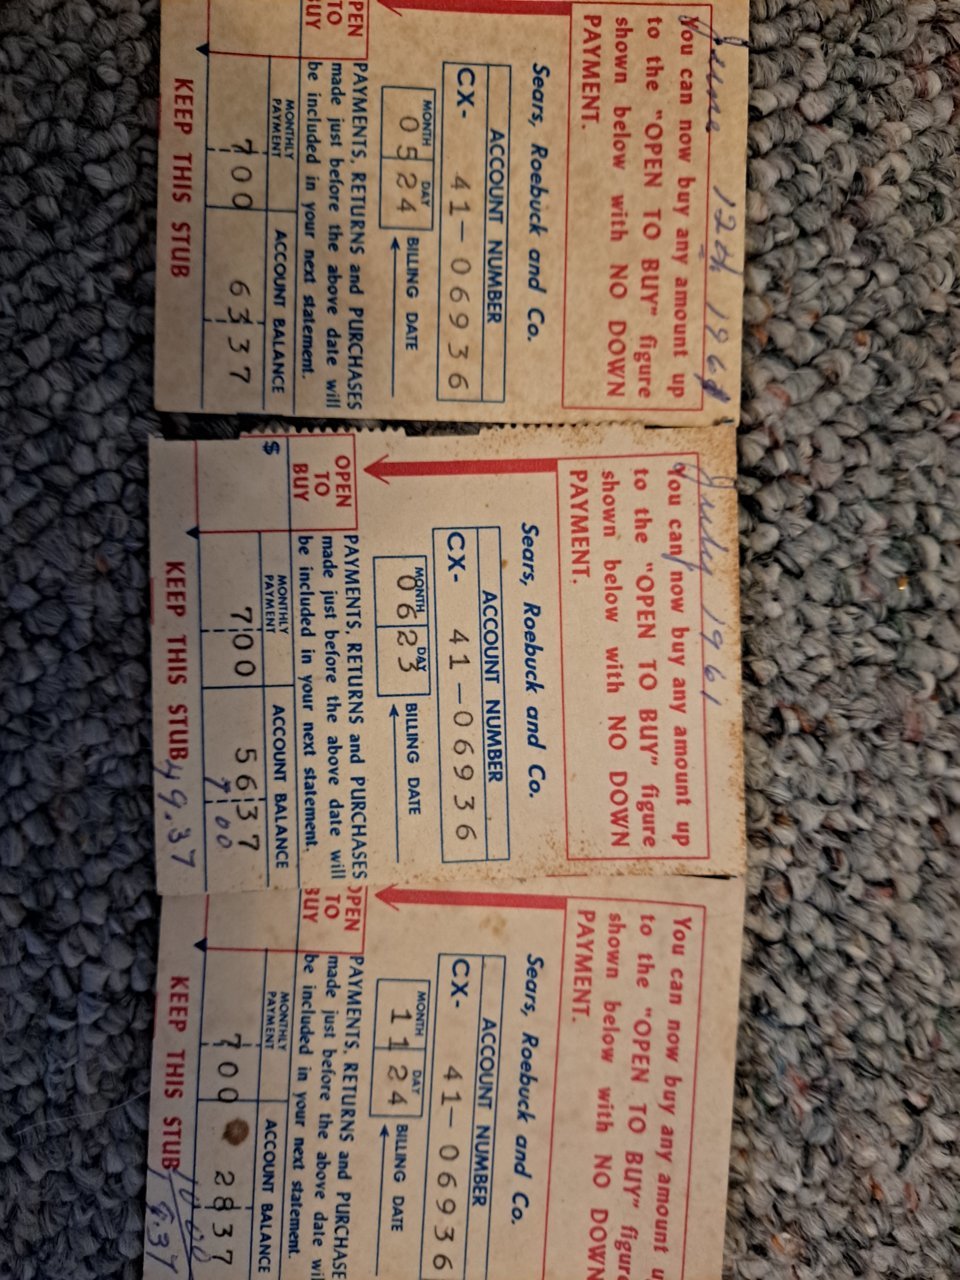 June 12th 1961
You can now buy any amount up
to the "OPEN TO BUY" figure
shown below with NO DOWN
PAYMENT.
Sears, Roebuck and Co.
ACCOUNT NUMBER
CX- 41-06936
MONTH DAY
05 24 BILLING DATE
PAYMENTS, RETURNS and PURCHASES
made just before the above date will
be included in your next statement.
PEN
TO
BUY
MONTHLY
PAYMENT
ACCOUNT BALANCE
7 00 63 37
KEEP THIS STUB
July 1961
You can now buy any amount up
to the "OPEN TO BUY" figure
shown below with NO DOWN
PAYMENT.
Sears, Roebuck and Co.
ACCOUNT NUMBER
CX- 41-06936
MONTH DAY
06 23 BILLING DATE
PAYMENTS, RETURNS and PURCHASES
made just before the above date will
be included in your next statement.
OPEN
TO
BUY
$
MONTHLY
PAYMENT
ACCOUNT BALANCE
7 00 56 37
7.00
KEEP THIS STUB 49.37
You can now buy any amount u
to the "OPEN TO BUY" figure
shown below with NO DOWN
PAYMENT.
Sears, Roebuck and Co.
ACCOUNT NUMBER
CX- 41-06936
MONTH DAY
11 24 BILLING DATE
PAYMENTS, RETURNS and PURCHASE
made just before the above date wi
be included in your next statement.
OPEN
TO
BUY
MONTHLY
PAYMENT
ACCOUNT BALANCE
7 00 28 37
KEEP THIS STUB 10.00